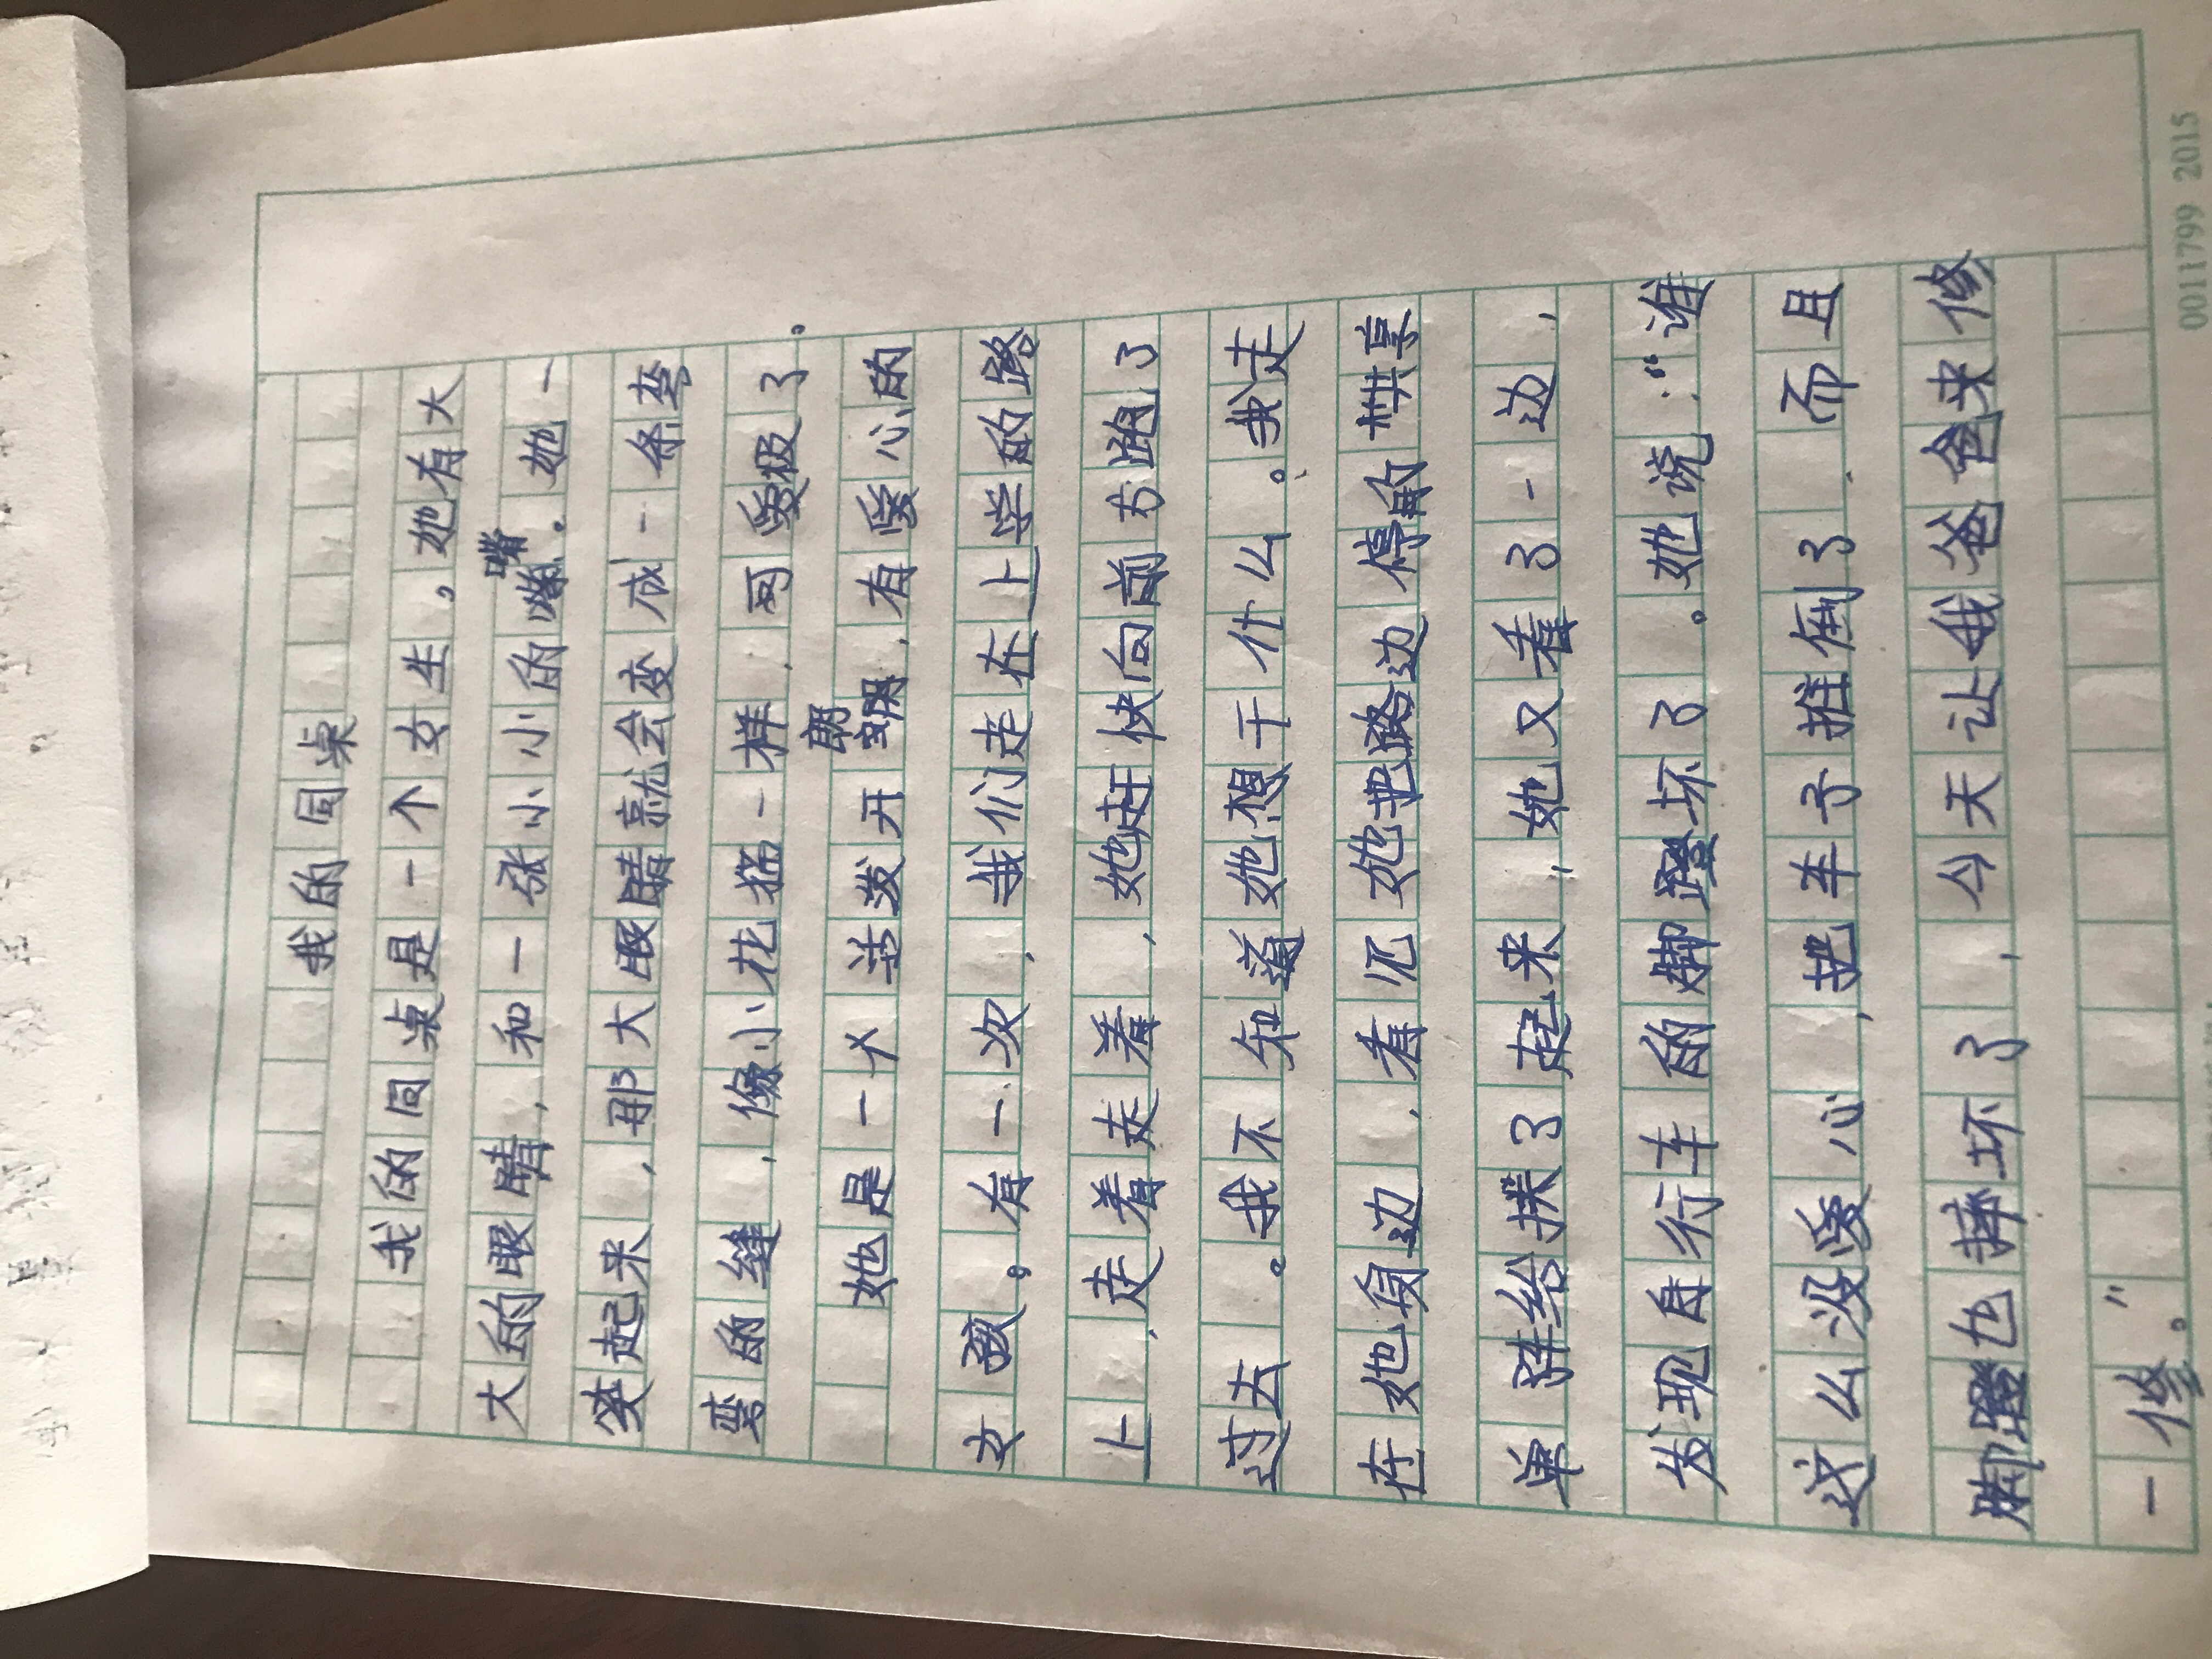 我的同桌
我的同桌是一个女生。她有大
大的眼睛，和一张小小的嘴。她一
笑起来，那大眼睛就会变成一条弯
弯的缝，像小花猫一样，可爱极了。
她是一个活发开朗，有爱心的
女孩。有一次，我们走在上学的路
上，走着走着，她赶快向前方跑了
过去。我不知道她想干什么。我走
在她身边，看见她把路边停的共享
单 给扶了起来，她又看了一边，
发现自行车的脚蹬坏了。她说：“谁
这么没爱心，把车子推倒了，而且
脚蹬也摔坏了，今天让我爸爸来修
一修。”
0011799 2015